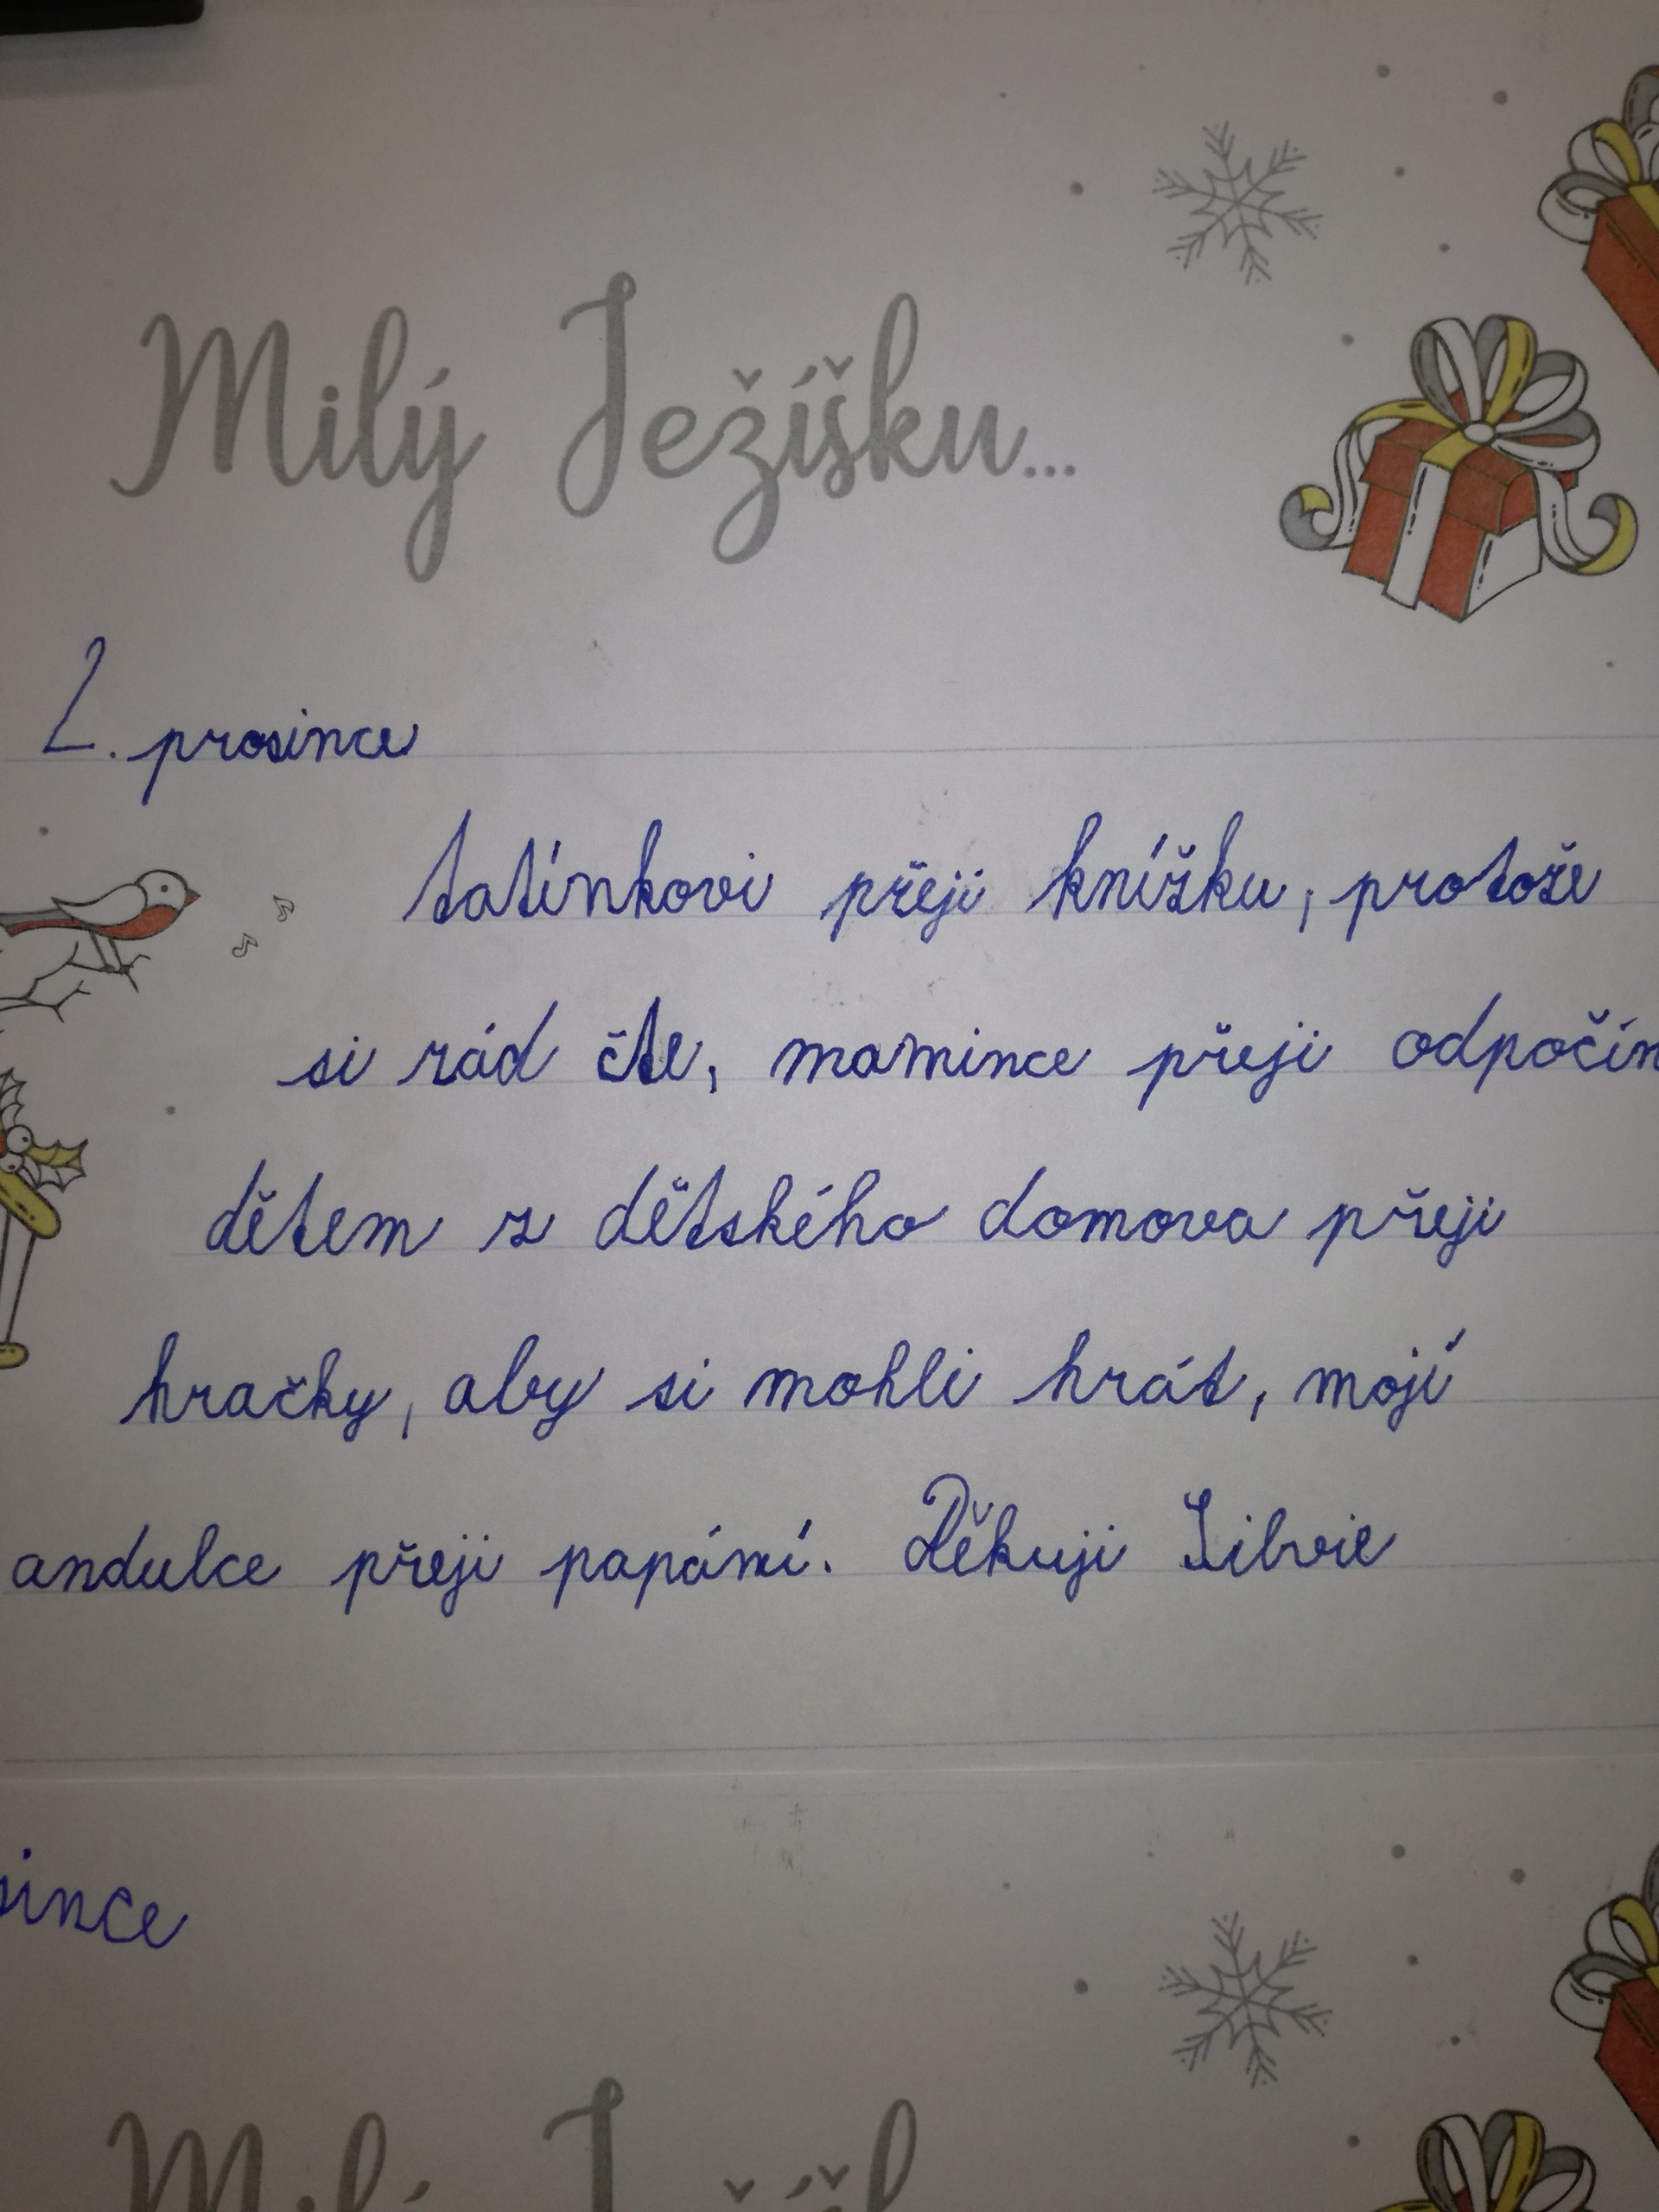 Milý Ježíšku...
2. prosince
tatínkovi přeji knížku, protože
si rád čte, mamince přeji odpočin
dětem z dětského domova přeji
hračky, aby si mohli hrát, mojí
andulce přeji papání. Děkuji Silvie
since